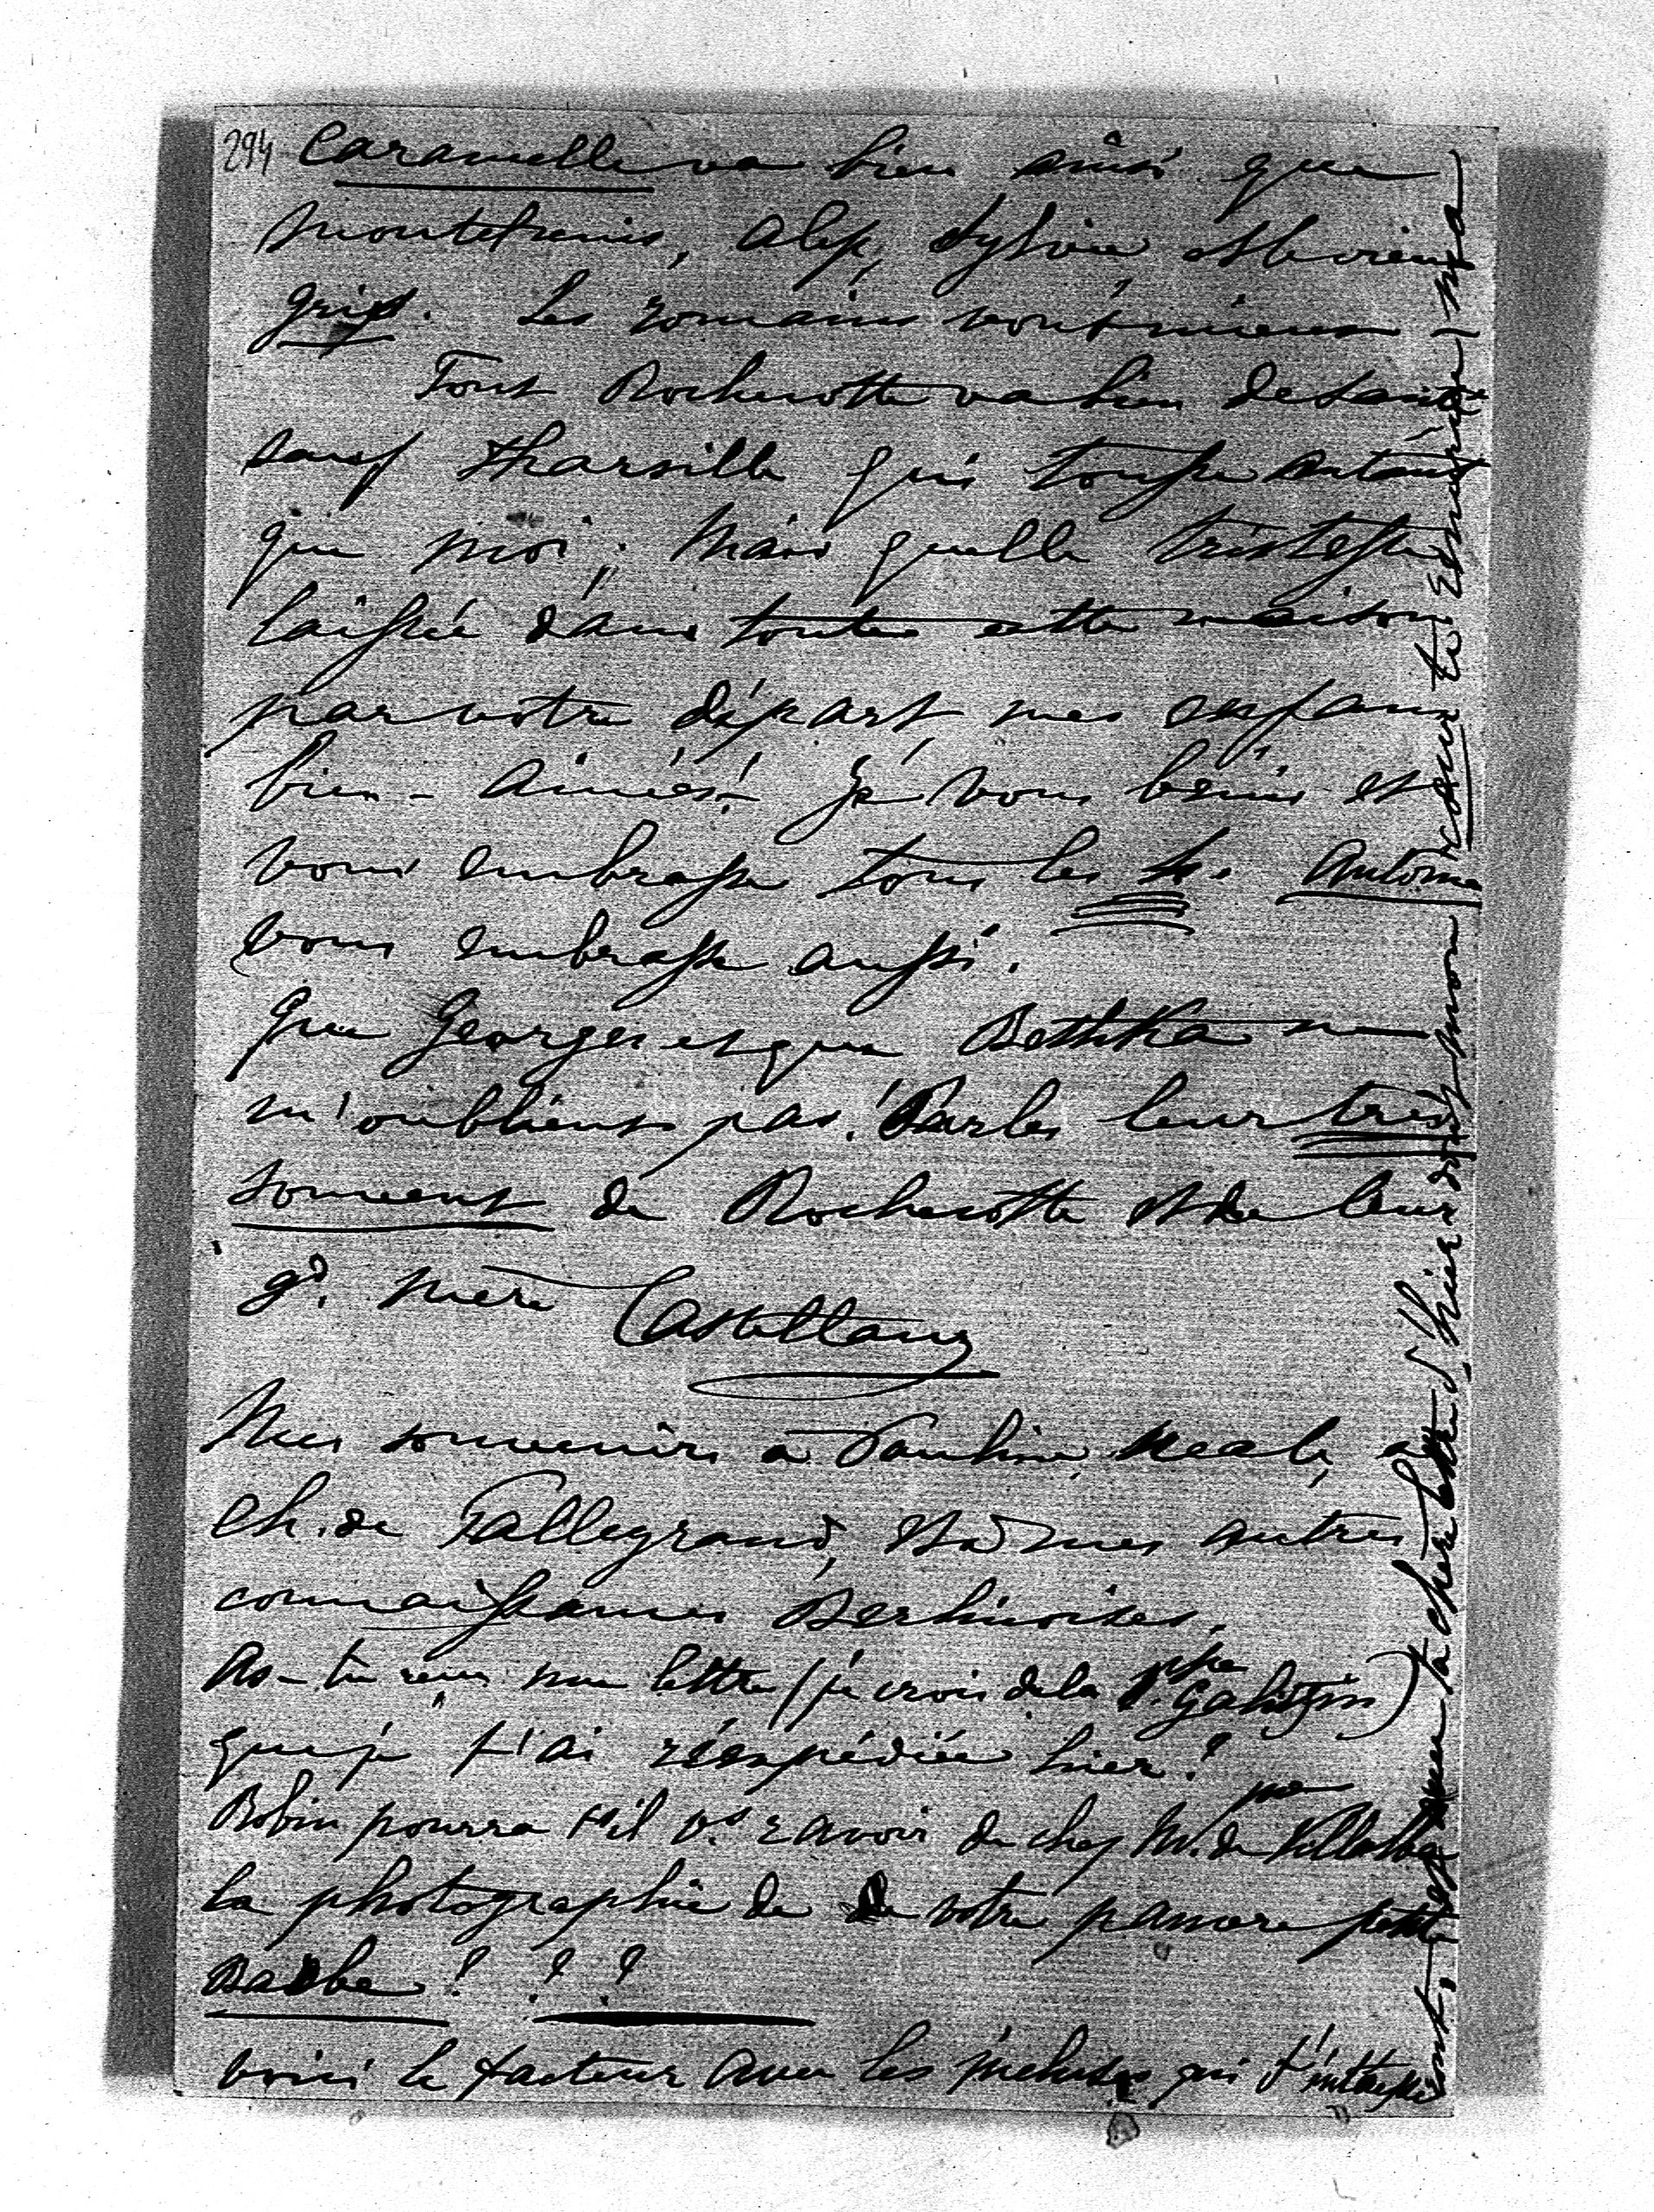 294 Caramelle va bien ainsi que
Montefrenis, Alep, Sylvie et le vieux
gris. Les romains vont mieux
Tout Rochecotte va bien de santé
sauf Tharsille qui tousse autant
que moi; Mais quelle tristesse
laissée dans toute cette maison
par votre départ mes enfans
bien-aimés! Je vous bénis et
vous embrasse tous les 4. Antoine
vous embrasse aussi.
Que Georges et que Bethka ne
m'oublient pas. Parles leur très
souvent de Rochecotte et de leur
gd. mère Castellane
Mes souvenirs à Pauline Neale, à
Ch. de Talleyrand, et à mes autres
connaissances Berlinoises.
As-tu reçu une lettre (je crois de la Psse Galitzin)
que je t'ai réexpédiée hier?
Robin pourra t'il vs. ravoir de chez Me. de
la photographie de votre pauvre petite
Barbe? ? ?
voici le facteur avec les incluses qui t'intéressent,
que ta chère lettre d'hier dont mon cœur te remercie, ma